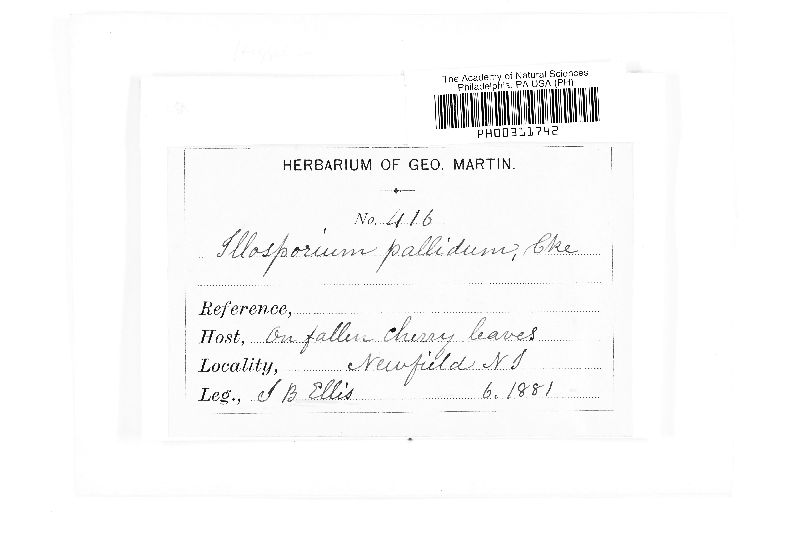 The Academy of Natural Sciences
Philadelphia, PA USA (PH)
PH00311742
HERBARIUM OF GEO. MARTIN.
No. 416
Illosporium pallidum, Cke
Reference,
Host, On fallen cherry leaves
Locality, Newfield N J
Leg., J B Ellis 6. 1881